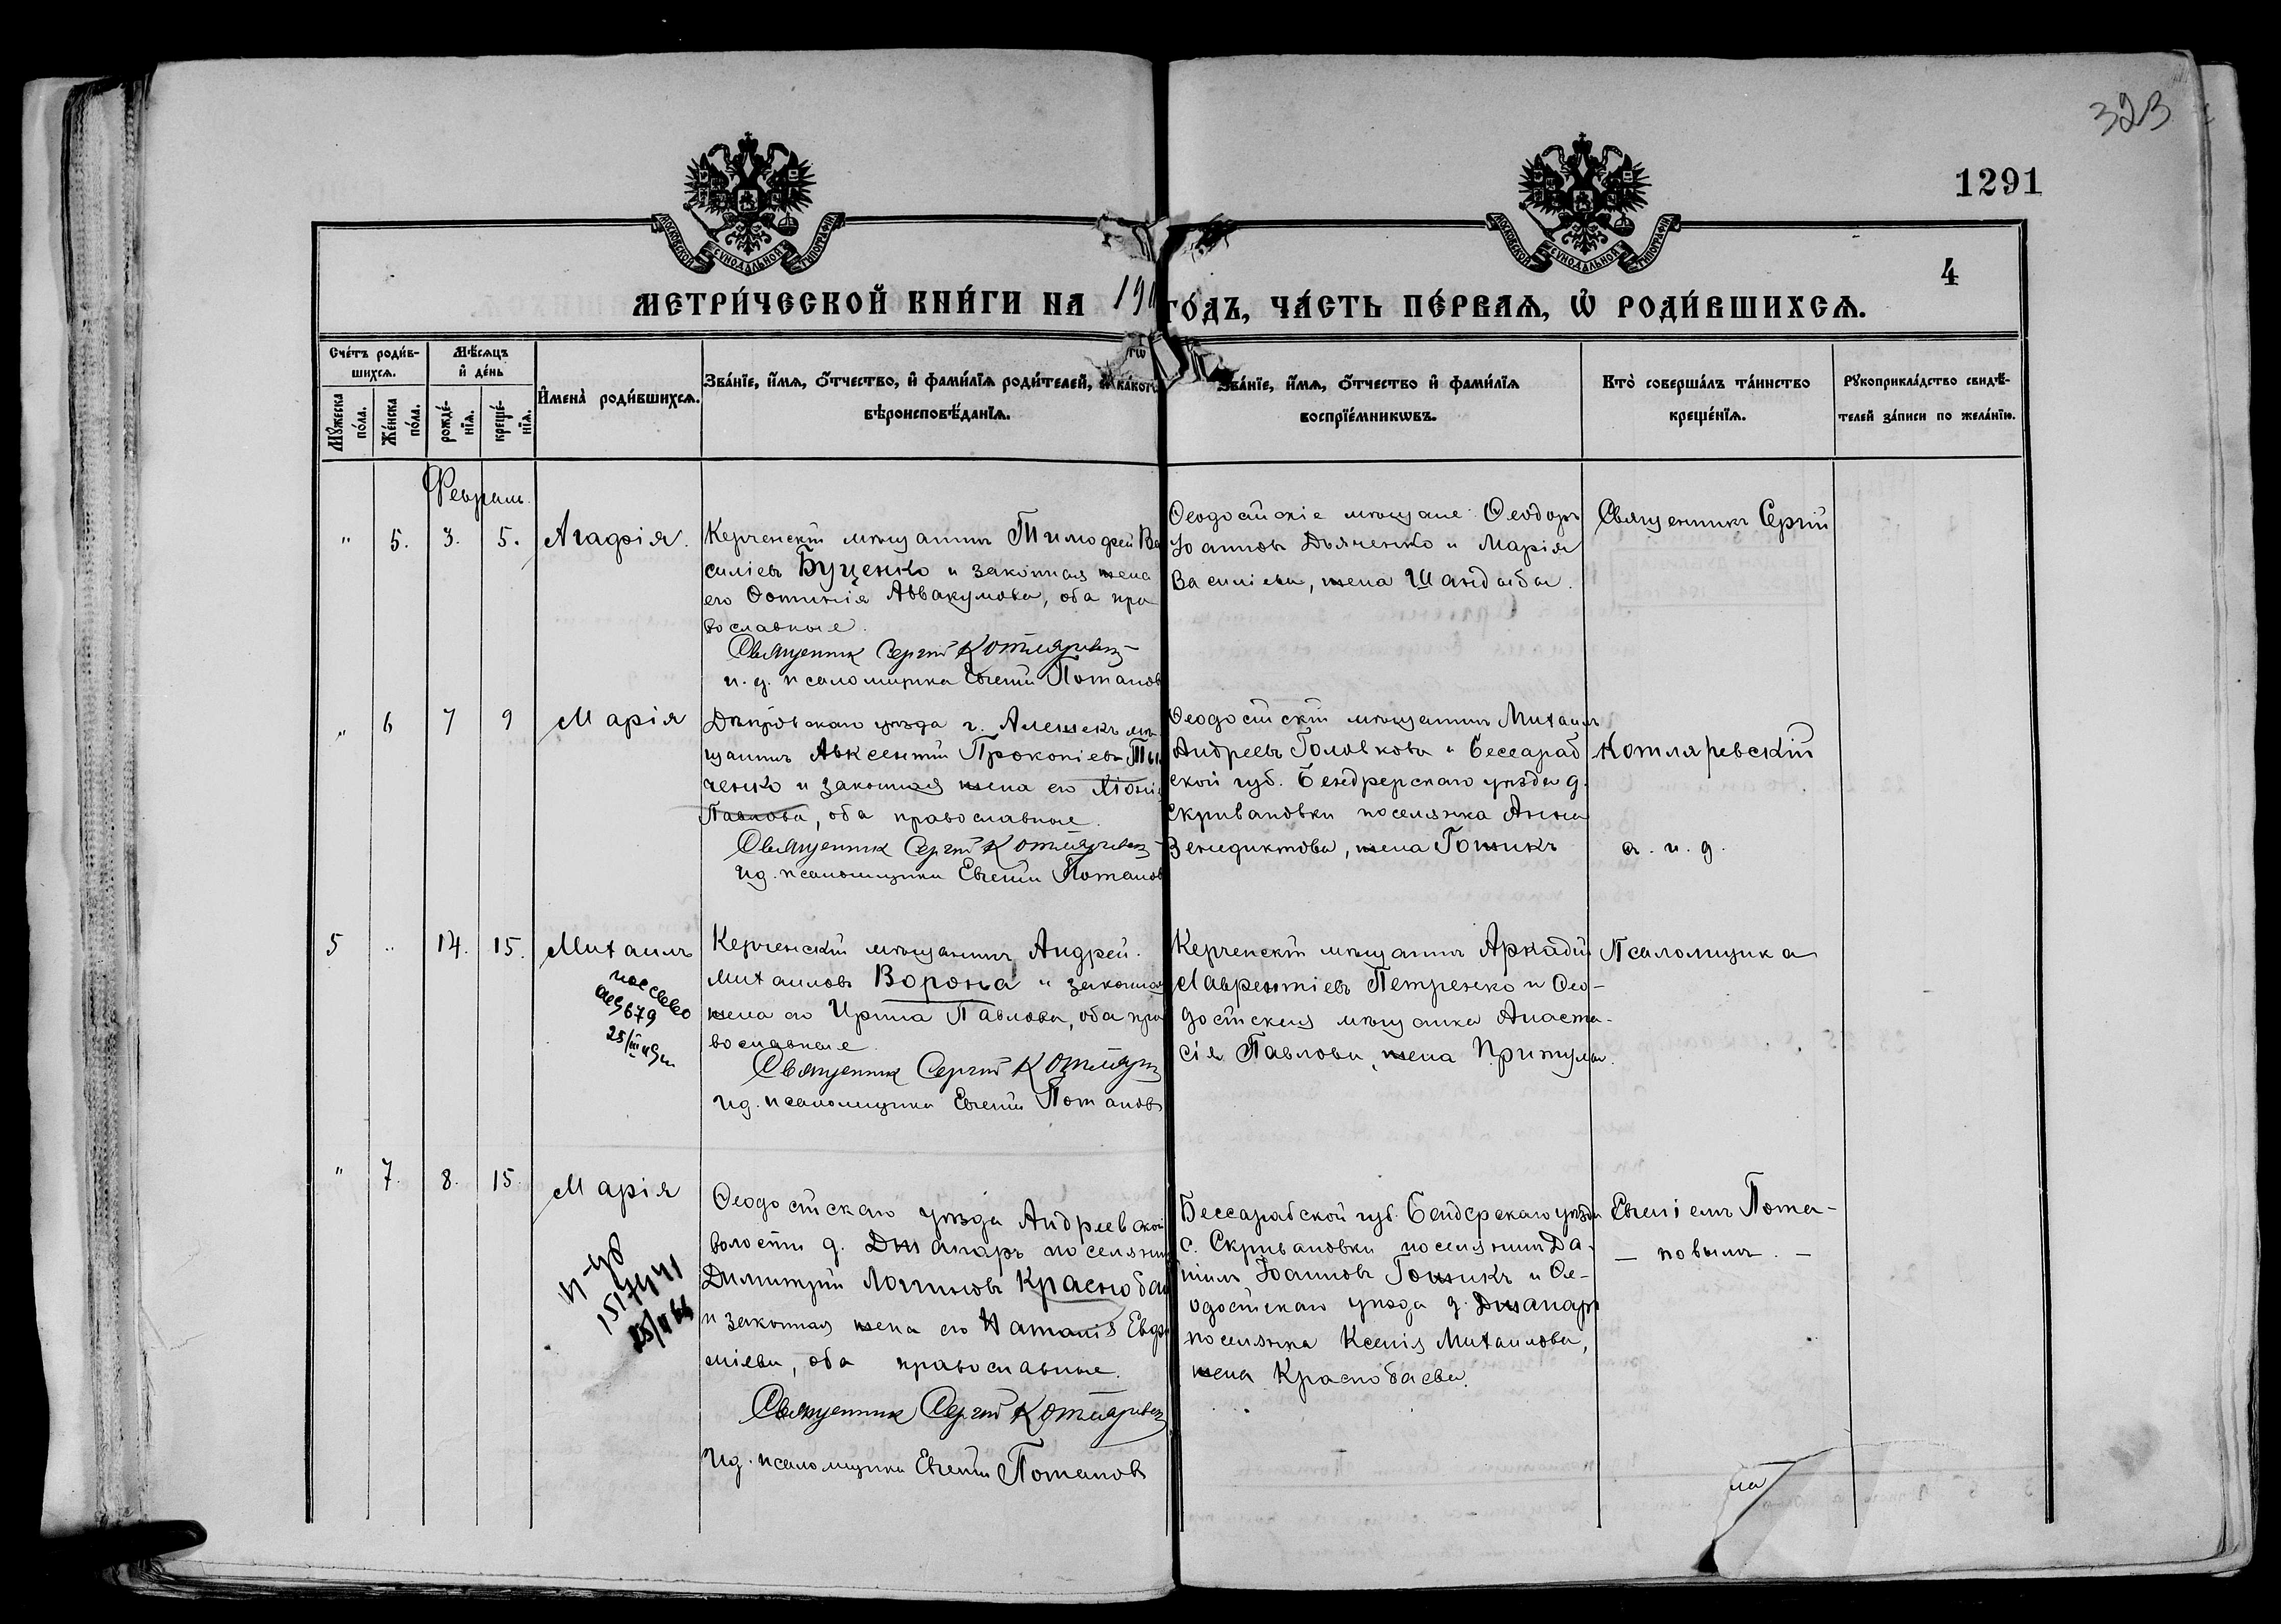 323
1291
4
МОСКОВСКОЙ СѴНОДАЛЬНОЙ ТИПОГРАФІИ
МОСКОВСКОЙ СѴНОДАЛЬНОЙ ТИПОГРАФІИ
МЕТРИ́ЧЕСКОЙ КНИ́ГИ НА 191 ГО́ДЪ, ЧА́СТЬ ПЕ́РВАѦ, Ѡ҆ РОДИ́ВШИХСѦ.
Сче́тъ роди́в-
шихсѧ.
Мꙋ́жеска по́ла.
Же́нска по́ла.
Мѣ́сѧцъ
и҆ де́нь
рожде́-
нїѧ.
креще́-
нїѧ.
И҆мена̀ роди́вшихсѧ.
Зва́нїе, и҆́мѧ, ѻ҆́тчество, и҆ фами́лїѧ роди́телей, и҆ како́гѡ
вѣроисповѣ́данїѧ.
Зва́нїе, и҆́мѧ, ѻ҆́тчество и҆ фами́лїѧ
воспрїе́мникѡвъ.
Кто̀ соверша́лъ та́инство
креще́нїѧ.
Рꙋкоприкла́дство свидѣ́-
телей за́писи по жела́нїю.
Февраль.
" 5. 3. 5. Агафія.
Керченскій мѣщанинъ Тимофей Ва
силіевъ Буценко и законная жена
его Фотинія Аввакумова, оба пра
вославные.
Священникъ Сергій Котляревск
и. д. псаломщика Евгеній Потапов
Ѳеодосійскіе мѣщане Ѳеодоръ
Іоанновъ Дьяченко и Марія
Василіева, жена Шандыба.
Священникъ Сергій
" 6 7 9 Марія
Днѣпровскаго уѣзда г. Алешекъ мѣ
щанинъ Авксентій Прокопіевъ
ченко и законная жена его
Павлова, оба православные.
Священникъ Сергій Котляревск
и.д. псаломщика Евгеній Потапов
Ѳеодосійскій мѣщанинъ Михаилъ
Андреевъ Головковъ и Бессараб
ской губ. Бендерскаго уѣзда д.
Скривановки поселянка Анна
Венедиктова, жена Гошикъ
Котляревскій
с. и. д.
5 " 14. 15. Михаилъ
25/III
Керченскій мѣщанинъ Андрей
Михаиловъ Ворона и законная
жена его Ирина Павлова, оба пра
вославные
Священникъ Сергій Котляр
и.д. псаломщика Евгеній Потапов
Керченскій мѣщанинъ Аркадій
Лаврентіевъ Петренко и Ѳео-
досійская мѣщанка Анаста-
сія Павлова, жена Притула.
Псаломщика
" 7. 8. 15. Марія
Ѳеодосійскаго уѣзда Андреевской
волости д. Джапаръ поселянин
Димитрій Логиновъ Краснобаев
и законная жена его Наталія Евфи
міева, оба православные.
Священникъ Сергій Котляревск
и.д. псаломщика Евгеній Потапов
Бессарабской губ. Бендерскаго уѣзда
с. Скривановки поселянин Да-
ніилъ Іоанновъ Гошикъ и Ѳе-
одосійскаго уѣзда д. Джапаръ
поселянка Ксенія Михаилова,
жена Краснобаева.
Евгеніемъ Пота-
— повымъ. —